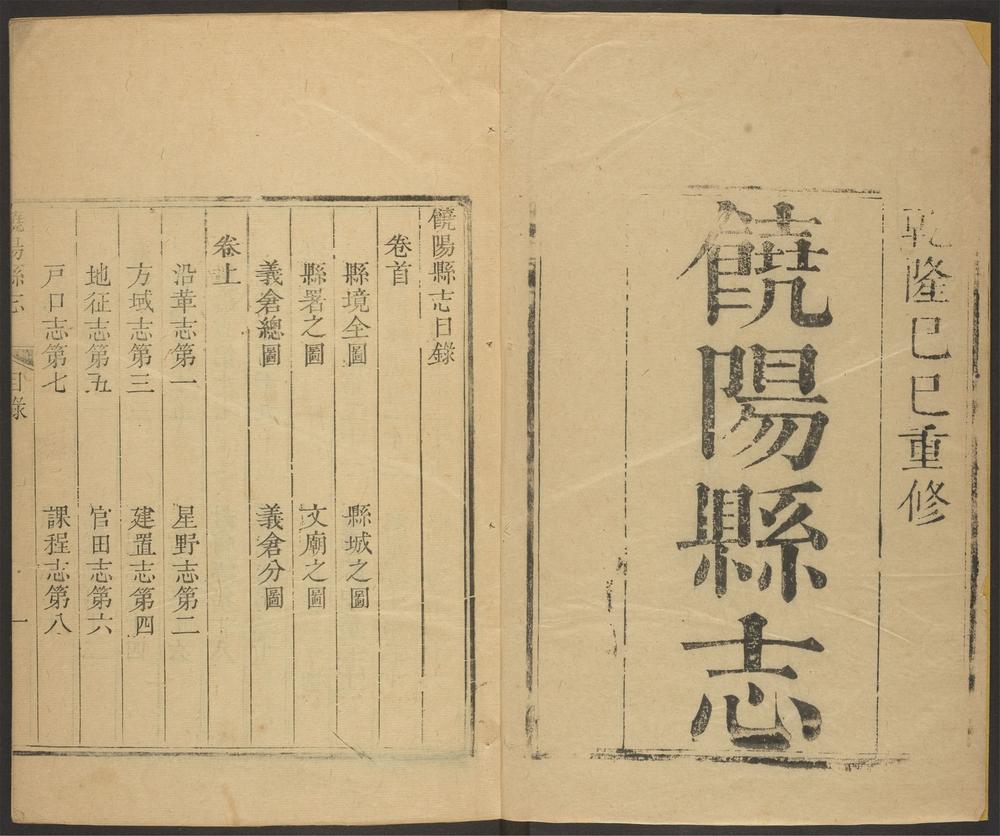 乾隆己巳重修
饒陽縣志
饒陽縣志目錄
卷首
縣境全圖 縣城之圖
縣署之圖 文廟之圖
義倉總圖 義倉分圖
卷上
沿革志第一 星野志第二
方域志第三 建置志第四
地征志第五 官田志第六
戸口志第七 課程志第八
饒陽縣志 目錄 一